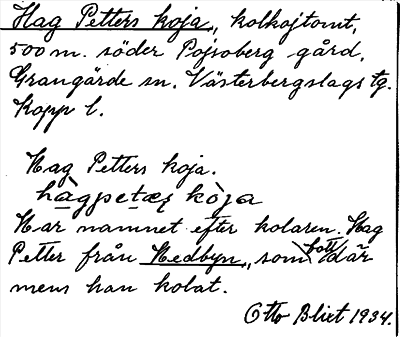 Hag Petters koja, kolkojtomt,
500 m. söder Pojsoberg gård,
Grangärde sn. Västerbergslags tg.
Kopp l.
Hag Petters koja.
hàgpetæṣ kòja
Har namnet efter kolaren Hag
Petter från Nedbyn, som bott där
mens han kolat.
Otto Blixt 1934.